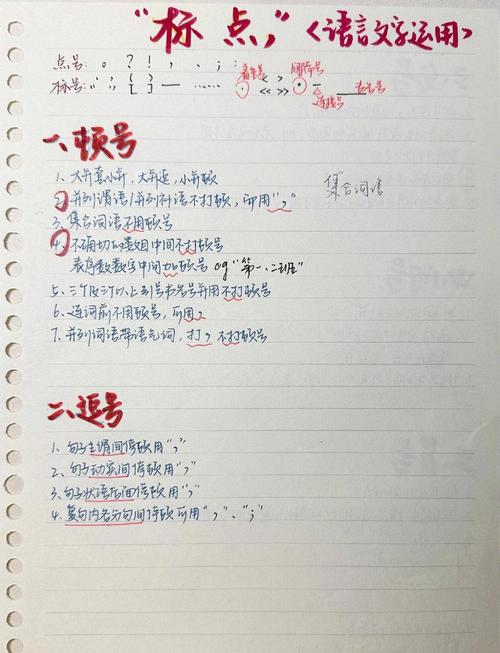 "标 点，" <语言文字运用>
点号：。？！，、；：
着重号 间隔号
标号：" " ' ' [ ] { } — …… < > << >> —
连接号 专名号
一、顿号
1、大并套小并，大并逗，小并顿
集合词语
②并列谓语/并列补语不打顿，即用"，"
3、集合词语不用顿号
④、不确切的数目中间不打顿号
表序数数字中间加顿号 eg"第一、二班"
5、三个及三个以上引号书名号并用不打顿号
6、连词前不用顿号，可用，
7、并列词语带语气词，打，不打顿号
二、逗号
1、句子主谓间停顿用"，"
2、句子动宾间停顿用"，"
3、句子状语后间停顿用"，"
4、复句内各分句间停顿可用"，"、"；"